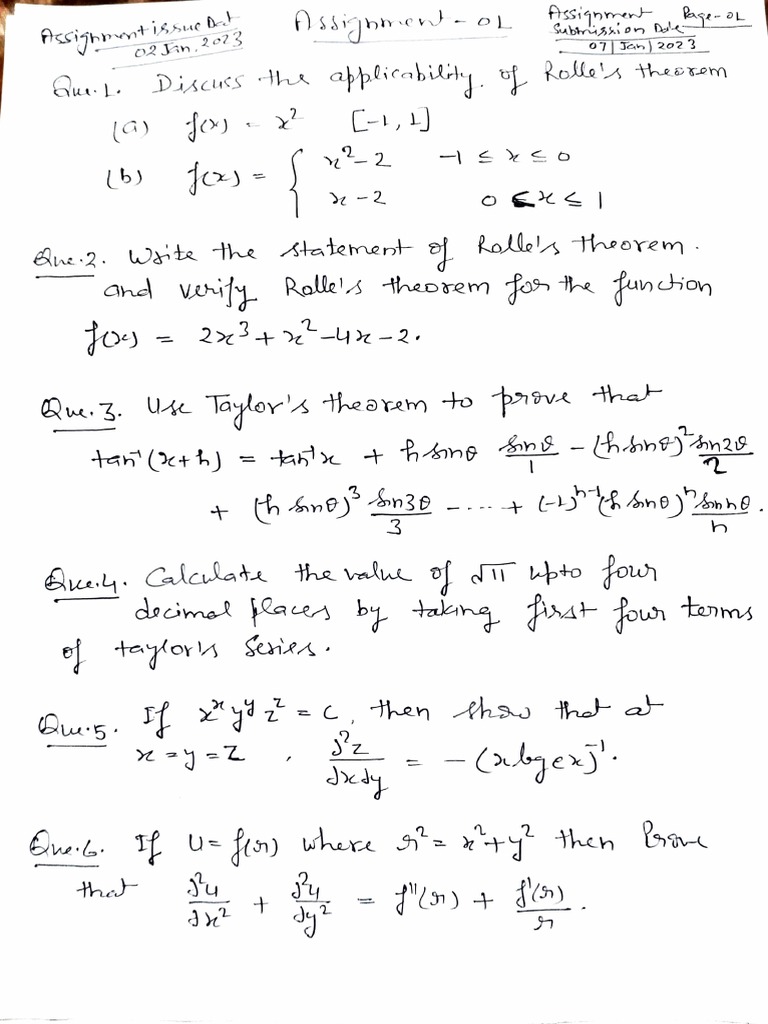 Assignment issue Dat
02 Jan, 2023
Assignment - 01
Assignment Page - 01
Submission Date
07 | Jan | 2023
Que.1. Discuss the applicability of Rolle's theorem
(a) f(x) = x² [-1, 1]
(b) f(x) = { x² - 2 -1 ≤ x ≤ 0
x - 2 0 ≤ x ≤ 1
Que.2. Write the statement of Rolle's theorem.
and verify Rolle's theorem for the function
f(x) = 2x³ + x² - 4x - 2.
Que.3. Use Taylor's theorem to prove that
tan⁻¹(x+h) = tan⁻¹x + h sinθ sinθ/1 - (h sinθ)² sin2θ/2
+ (h sinθ)³ sin3θ/3 - .... + (-1)ⁿ⁻¹ (h sinθ)ⁿ sin nθ/n.
Que.4. Calculate the value of √11 upto four
decimal places by taking first four terms
of taylor's series.
Que.5. If xˣ yʸ zᶻ = c, then show that at
x = y = z , ∂²z/∂x∂y = - (x log ex)⁻¹.
Que.6. If u = f(r) where r² = x² + y² then Prove
that ∂²u/∂x² + ∂²u/∂y² = f''(r) + f'(r)/r.